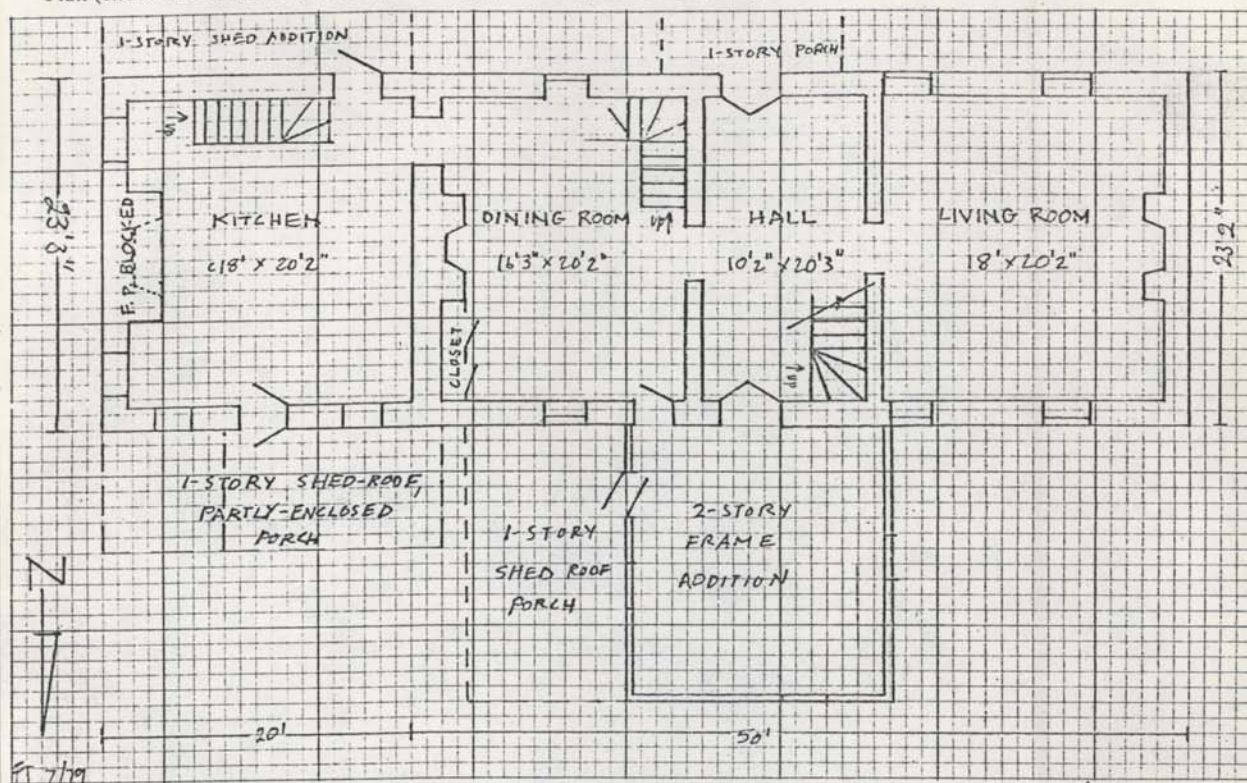 1-STORY SHED ADDITION
1-STORY PORCH
UP
23'3"
F.P. BLOCKED
KITCHEN
c18' X 20'2"
DINING ROOM
16'3" X 20'2"
UP
HALL
10'2" X 20'3"
LIVING ROOM
18' X 20'2"
23'2"
CLOSET
UP
1-STORY SHED-ROOF,
PARTLY-ENCLOSED
PORCH
1-STORY
SHED ROOF
PORCH
2-STORY
FRAME
ADDITION
N
20'
50'
7/79